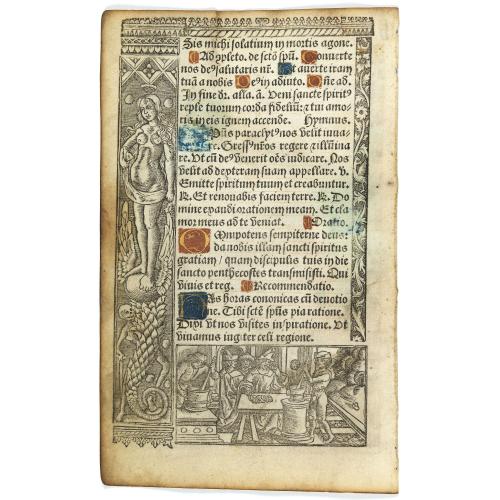 Sis michi solatium in mortis agone.
Ad cōpleto. de sctō spū. Conuerte
nos deꝰ salutaris nr̄. Et auerte iram
tuā a nobis Deꝰ in adiuto. Dn̄e ad.
In fine dr̄. alla. a. Veni sancte spirit
reple tuorum corda fideliū: ⁊ tui amo-
ris in eis ignem accende. Hymnus.
Spūs paraclytꝰ nos velit iuua-
re. Gressꝰ nr̄os regere ⁊ illumina
re. Vt cū deꝰ venerit oēs iudicare. Nos
velit ad dexteram suam appellare. v.
Emitte spiritum tuum et creabuntur.
R. Et renouabis faciem terre. R. Do
mine exaudi orationem meam. Et cla
mor meus ad te veniat. Oratio.
Omnipotens sempiterne deus:
da nobis illam sancti spiritus
gratiam/ quam discipulis tuis in die
sancto penthecostes transmisisti. Qui
viuis et reg. Recommendatio.
Has horas canonicas cū deuotio
ne. Tibi sctē spūs pia ratione.
Dixi vt nos visites inspiratione. Vt
viuamus iugiter celi regione.